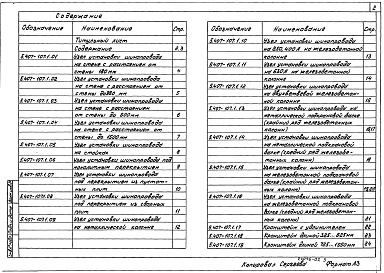 2
Содержание
Обозначение Наименование Стр.
Титульный лист
Содержание 2,3
5.407-107.1.01 Узел установки шинопровода
на стене с расстоянием от
стены 180 мм 4
5.407-107.1.02 Узел установки шинопровода
на стене с расстоянием от
стены до 350 мм 5
5.407-107.1.03 Узел установки шинопровода
на стене с расстоянием
от стены до 500 мм 6
5.407-107.1.04 Узел установки шинопровода
на стене с расстоянием от
стены до 1200 мм 7
5.407-107.1.05 Узел установки шинопровода
на стойках 8
5.407-107.1.06 Узел установки шинопровода под
монолитным перекрытием 9
5.407-107.1.07 Узел установки шинопровода
под перекрытием из пустот-
ных плит 10
5.407-107.1.08 Узел установки шинопровода
под перекрытием из сборных
плит 11
5.407-107.1.09 Узел установки шинопровода
на металлической колонне 12
Обозначение Наименование Стр.
5.407-107.1.10 Узел установки шинопровода
на 250, 400 А на железобетонной
колонне 13
5.407-107.1.11 Узел установки шинопровода
на 630 А на железобетонной
колонне 14
5.407-107.1.12 Узел установки шинопровода
на двухветвевой железобетон-
ной колонне 15
5.407-107.1.13 Узел установки шинопровода на
металлической подкрановой
балке (крайний ряд железобетонных
колонн) 16,17
5.407-107.1.14 Узел установки шинопровода
на металлической подкрановой
балке (средний ряд железобе-
тонных колонн) 18
5.407-107.1.15 Узел установки шинопровода
на железобетонной подкрановой
балке (крайний ряд железобетон-
ных колонн) 19,20
5.407-107.1.16 Узел установки шинопровода
на железобетонной подкрановой
балке (средний ряд железобетон-
ных колонн) 21
5.407-107.1.17 Кронштейн с удлинителем 22
5.407-107.1.18 Кронштейн длиной 23
5.407-107.1.19 Кронштейн длиной 24
Копировал Сергеева Формат А3